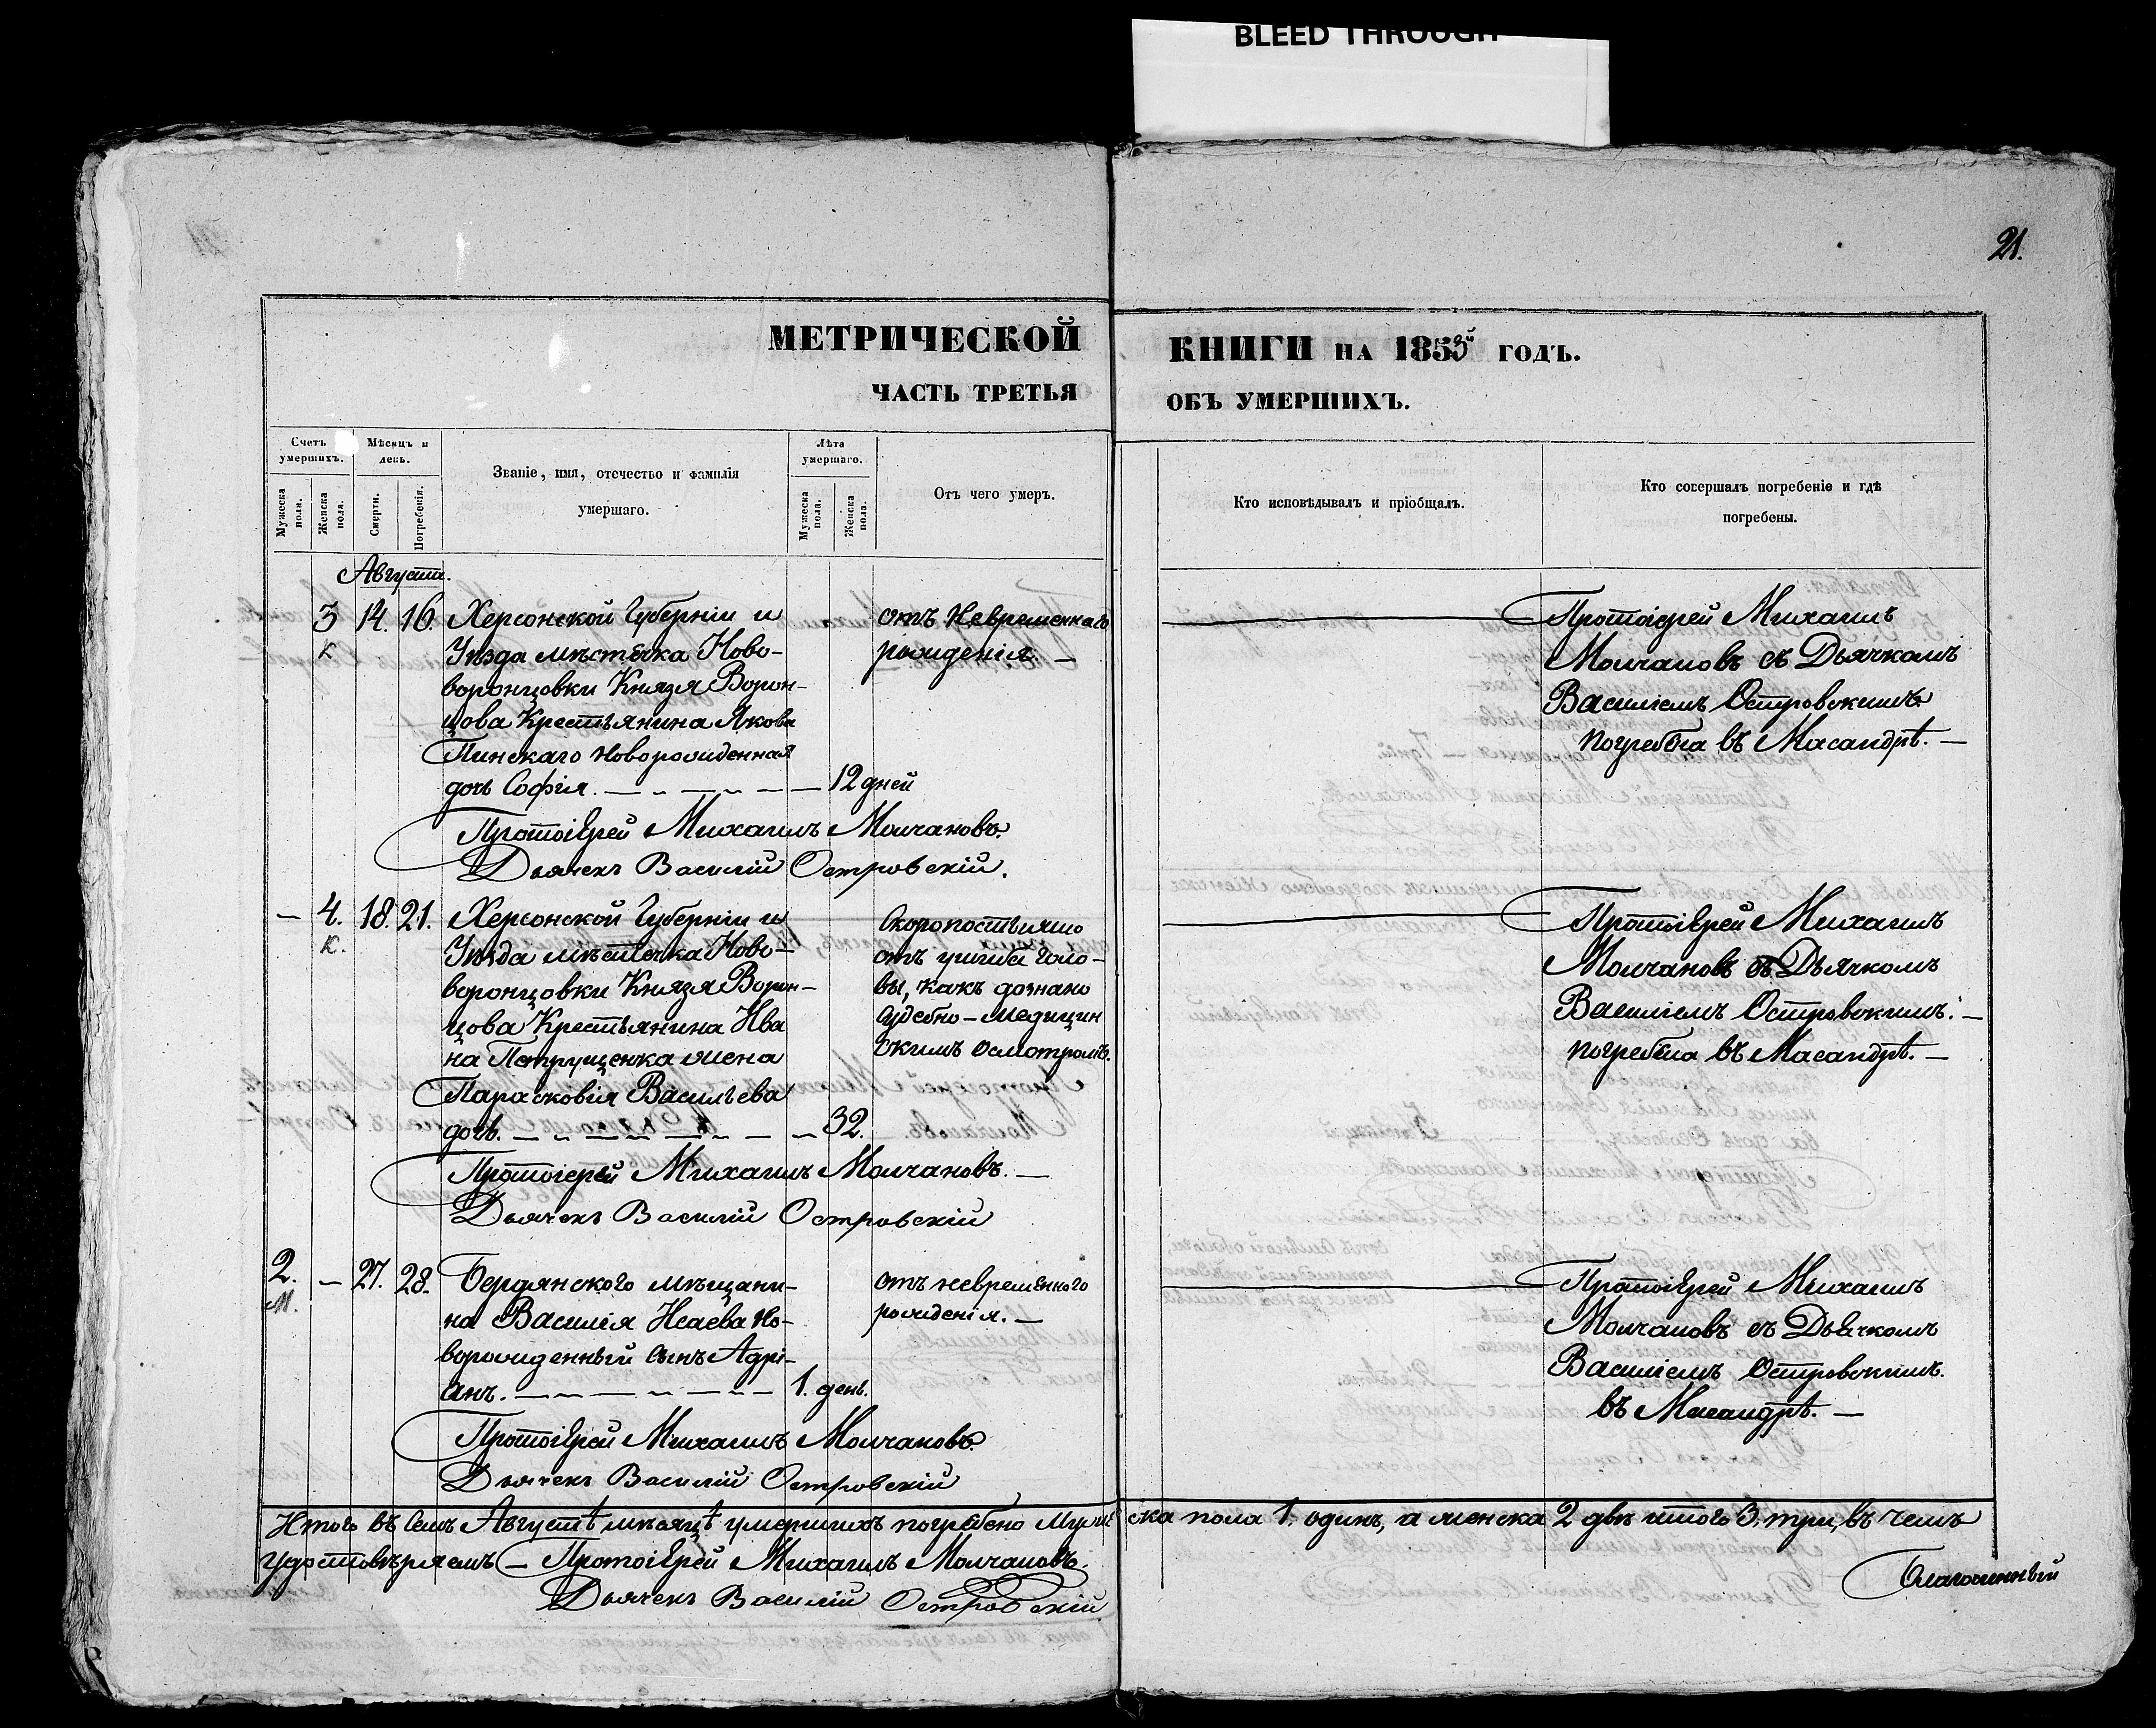 BLEED THROUGH
21.
МЕТРИЧЕСКОЙ
ЧАСТЬ ТРЕТЬЯ
КНИГИ НА 1853й ГОДЪ.
ОБЪ УМЕРШИХЪ.
Счетъ умершихъ.
Мужеска пола.
Женска пола.
Мѣсяцъ и день.
Смерти.
Погребенія.
Званіе, имя, отечество и фамилія
умершаго.
Лѣта умершаго.
Мужеска пола.
Женска пола.
Отъ чего умеръ.
Кто исповѣдывалъ и пріобщалъ.
Кто совершалъ погребеніе и гдѣ
погребены.
Августа.
3 14. 16. Херсонской Губерніи и
Уѣзда мѣстечка Ново-
воронцовки Князя Ворон-
цова Крестьянина Якова
Пинскаго новорожденная
дочь Софія. — 12 дней
отъ невременнаго
рожденія. —
Протоіерей Михаилъ
Молчановъ съ Дьячкомъ
Василіемъ Островскимъ
погребена въ Масандрѣ. —
Протоіерей Михаилъ Молчановъ.
Дьячекъ Василій Островскій.
— 4. 18. 21. Херсонской Губерніи и
к.
Уѣзда мѣстечка Ново-
воронцовки Князя Ворон-
цова Крестьянина Ива
на Петрущенка жена
Парасковія Васильева
дочь. — 32.
Скоропостижно
отъ ушиба голо-
вы, какъ дознано
судебно-медицин
скимъ осмотромъ.
Протоіерей Михаилъ
Молчановъ съ Дьячкомъ
Василіемъ Островскимъ: —
погребена въ Масандрѣ. —
Протоіерей Михаилъ Молчановъ. —
Дьячекъ Василій Островскій
2. — 27. 28. Бердянского мѣщани-
м.
на Василія Исаева но-
ворожденный сынъ Адрі-
анъ. — 1. день.
отъ невременного
рожденія. —
Протоіерей Михаилъ
Молчановъ съ Дьячкомъ
Василіемъ Островскимъ.
въ Масандрѣ. —
Протоіерей Михаилъ Молчановъ
Дьячекъ Василій Островскій
Итого въ семъ Августѣ мѣсяцѣ умершихъ погребено Муже ска пола 1. одинъ, а женска 2 двѣ итого 3. три, въ чемъ
удостовѣряемъ — Протоіерей Михаилъ Молчановъ.
Дьячекъ Василій Островскій
Благочинный